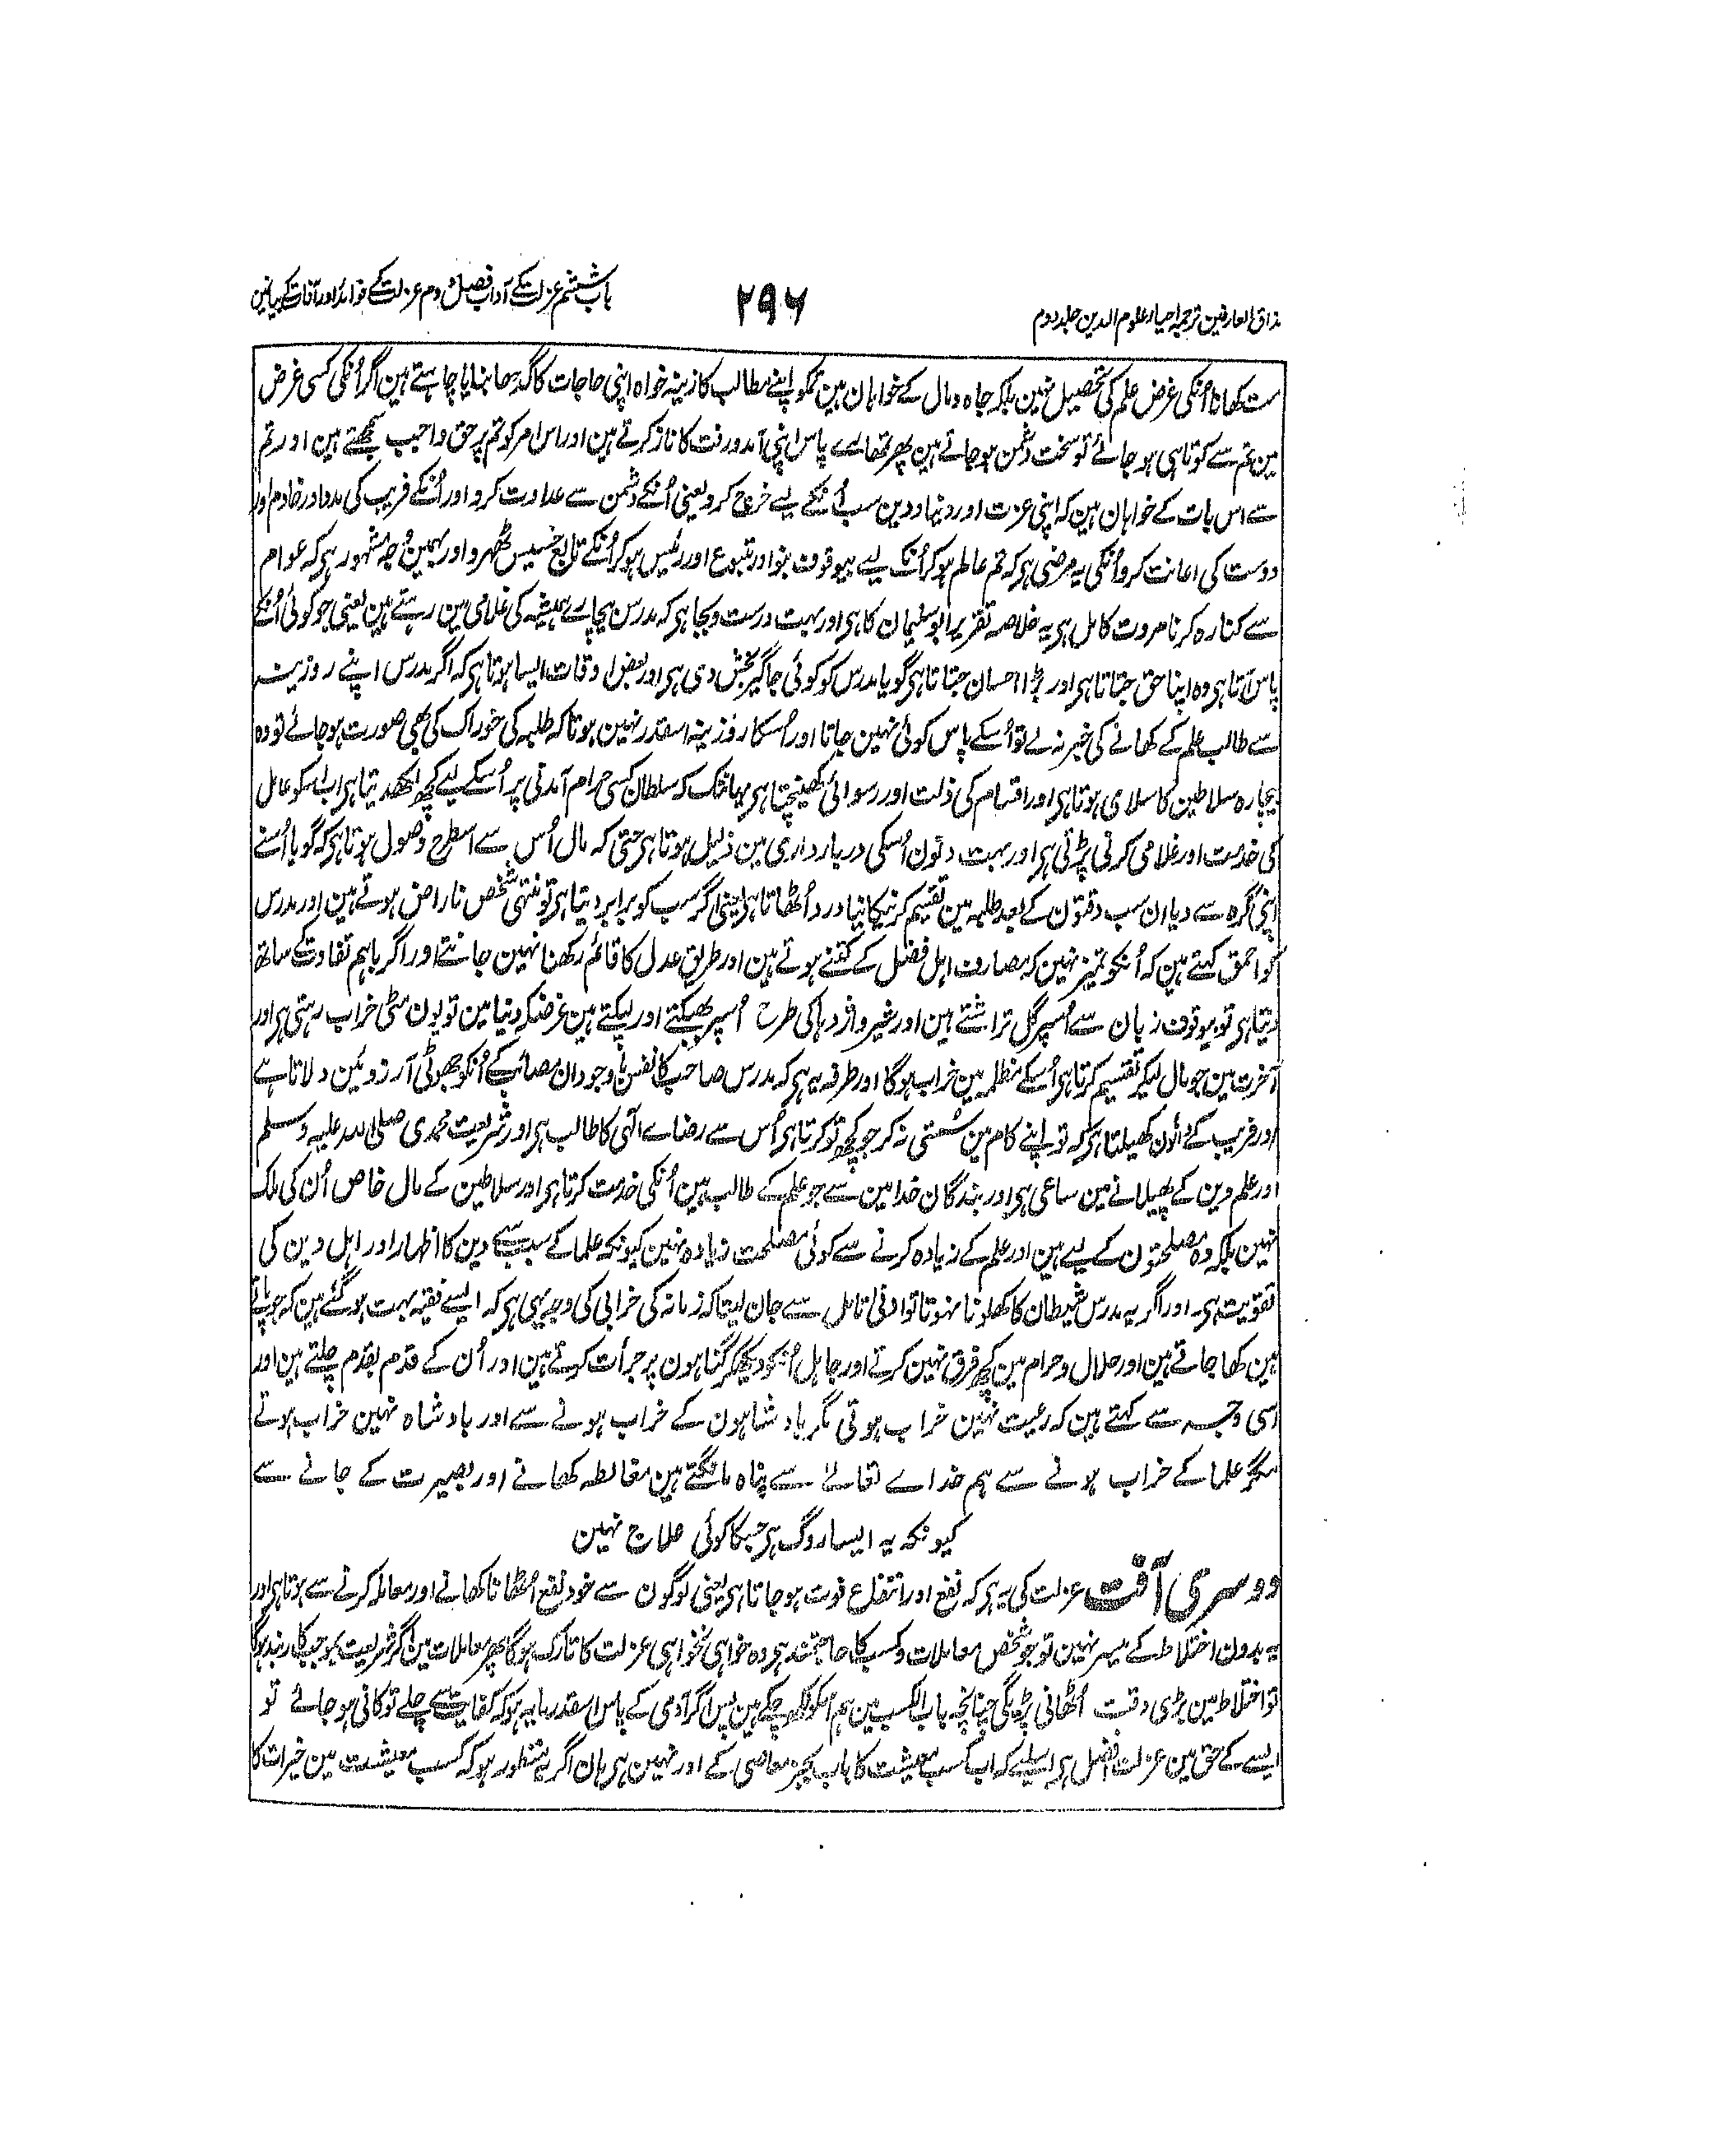 مذاق العارفین ترجمہ احیاء علوم الدین جلد دوم
۲۹۶
باب ششم عزلت کے آداب فصل دوم عزلت کے فوائد اور آفات کے بیان مین
مت کھانا اُنکی غرض علم کی تحصیل نہین بلکہ جاہ و مال کے خواہان ہین تمکو اپنے مطالب کا زینہ خواہ اپنی حاجات کا گدھا بنایا چاہتے ہین اگر اُنکی کسی غرض
مین تم سے کوتاہی ہو جائے تو سخت دشمن ہو جاتے ہین پھر تمھارے پاس اپنی آمد و رفت کا ناز کرتے ہین اور اس امر کو تم پر حق واجب سمجھتے ہین اور تم
سے اس بات کے خواہان ہین کہ اپنی عزت اور دنیا و دین سب اُنکے لیے خرچ کرو یعنی اُنکے دشمن سے عداوت کرو اور اُنکے قریب کی مدد اور خادم اور
دوست کی اعانت کرو اُنکی یہ مرضی ہی کہ تم عالم ہو کر اُنکے لیے بیوقوف بنو اور متبوع اور رئیس ہو کر اُنکے تابع خسیس ٹھہرو اور یہین وجہ مشہور ہی کہ عوام
سے کنارہ کرنا مروت کامل ہی یہ خلاصہ تقریر ابو سلیمان کا ہی اور بہت درست و بجا ہی کہ مدرس بیچارے ہمیشہ کی غلامی مین رہتے ہین یعنی جو کوئی اُنکے
پاس آتا ہی وہ اپنا حق جتاتا ہی اور بڑا احسان جتاتا ہی گویا مدرس کو کوئی جاگیر بخش دی ہی اور بعض اوقات ایسا ہوتا ہی کہ اگر مدرس اپنے روزینہ
سے طالب علم کے کھانے کی خبر نہ لے تو اُسکے پاس کوئی نہین جاتا اور اُسکا روزینہ اسقدر نہین ہوتا کہ طلبہ کی خوراک کی بھی صورت ہو جائے تو وہ
بیچارہ سلاطین کا سلامی ہوتا ہی اور اقسام کی ذلت اور رسوائی کھینچتا ہی یہانتک کہ سلطان کسی حرام آمدنی پر اُسکے لیے کچھ لکھدیتا ہی اب اُسکو عامل
کی خدمت اور غلامی کرنی پڑتی ہی اور بہت دنون اُسکی دربار داری مین ذلیل ہوتا ہی حتی کہ مال اُس سے اسطرح وصول ہوتا ہی کہ گویا اُسنے
اپنی گرہ سے دیا ان سب دقتون کے بعد طلبہ مین تقسیم کرنیکا نیا درد اُٹھاتا ہی یعنی اگر سب کو برابر دیتا ہی تو منتہی شخص ناراض ہوتے ہین اور مدرس
کو احمق کہتے ہین کہ اُنکو تمیز نہین کہ مصارف اہل فضل کے کتنے ہوتے ہین اور طریق عدل کا قائم رکھنا نہین جانتے اور اگر باہم تفاوت کے ساتھ
دیتا ہی تو بیوقوف زبان سے اُسپر گل تراشتے ہین اور شیر و اژدہا کی طرح اُسپر بھبکتے اور لپکتے ہین غرضکہ دنیا مین تو یون مٹی خراب رہتی ہی اور
آخرت مین جو مال لیکر تقسیم کرتا ہی اُسکے مظلمہ مین خراب ہوگا اور طرفہ یہ ہی کہ مدرس صاحب کا نفس باوجود ان مصائب کے اُنکو جھوٹی آرزوئین دلاتا ہے
اور فریب کے دانون کھیلتا ہی کہ تو اپنے کام مین سستی نہ کر جو کچھ تو کرتا ہی اُس سے رضاے الٰہی کا طالب ہی اور شریعت محمدی صلی اللہ علیہ وسلم
اور علم دین کے پھیلانے مین ساعی ہی اور بندگان خدا مین سے جو علم کے طالب ہین اُنکی خدمت کرتا ہی اور سلاطین کے مال خاص اُن کی ملک
نہین بلکہ وہ مصلحتون کے لیے ہین اور علم کے زیادہ کرنے سے کوئی مصلحت زیادہ نہین کیونکہ علما کے سبب سے دین کا اظہار اور اہل دین کی
تقویت ہی۔ اور اگر یہ مدرس شیطان کا کھلونا نہوتا تو ادنیٰ تامل سے جان لیتا کہ زمانہ کی خرابی کی وجہ یہی ہی کہ ایسے فقیہ بہت ہو گئے ہین کہ جو پاتے
ہین کھا جاتے ہین اور حلال و حرام مین کچھ فرق نہین کرتے اور جاہل اُنکو دیکھکر گناہون پر جرأت کرتے ہین اور اُن کے قدم بقدم چلتے ہین اور
اسی وجہ سے کہتے ہین کہ رعیت نہین خراب ہوتی مگر بادشاہون کے خراب ہونے سے اور بادشاہ نہین خراب ہوتے
مگر علما کے خراب ہونے سے ہم خداے تعالےٰ سے پناہ مانگتے ہین مغالطہ کھانے اور بصیرت کے جانے سے
کیونکہ یہ ایسا روگ ہی جسکا کوئی علاج نہین
دوسری آفت عزلت کی یہ ہی کہ نفع اور انتفاع فوت ہو جاتا ہی یعنی لوگون سے خود نفع اُٹھانا کھانے اور معاملہ کرنے سے ہوتا ہی اور
یہ بدون اختلاط کے میسر نہین تو جو شخص معاملات و کسب کا حاجتمند ہی وہ خواہی نخواہی عزلت کا تارک ہوگا پھر معاملات مین اگر شریعت کے بموجب کاربند ہوگا
تو اختلاط مین بڑی دقت اُٹھانی پڑیگی چنانچہ باب الکسب مین ہم اُسکو لکھ چکے ہین پس اگر آدمی کے پاس اسقدر مایہ ہو کہ کفایت سے چلے تو کافی ہو جائے تو
ایسے کے حق مین عزلت افضل ہی اسلیے کہ اب کسب معیشت کا باب بجز معاصی کے اور نہین ہی ہان اگر یہ منظور ہو کہ کسب معیشت مین خیرات کا